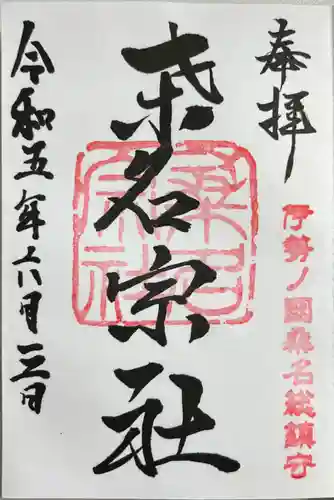 奉拝
伊勢ノ國桑名総鎮守
桒名宗社
桑名
宗社
令和五年六月三日